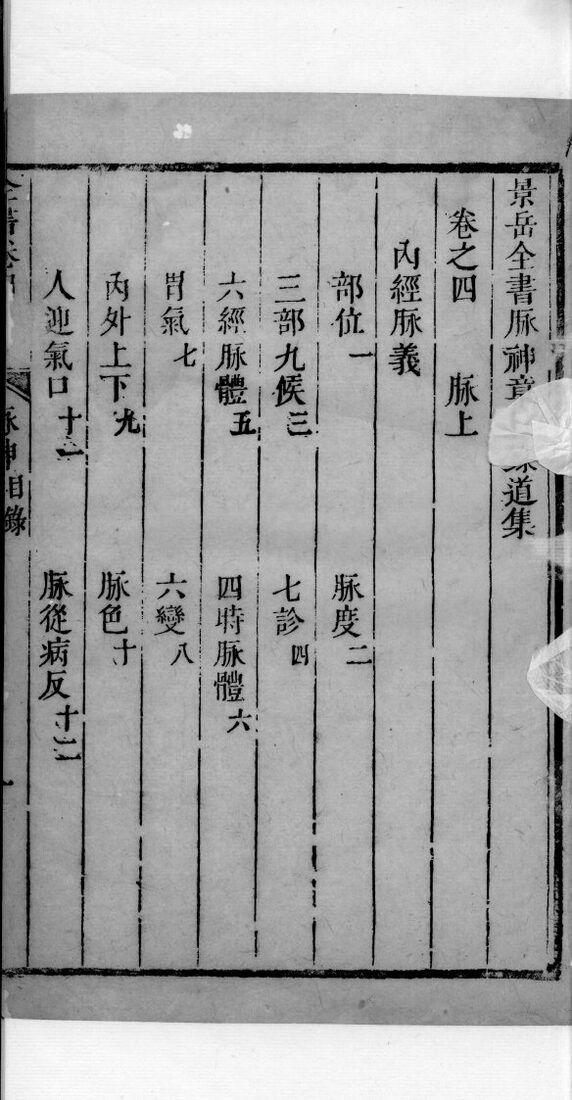 景岳全書脉神章
道集
卷之四　脉上
內經脉義
部位一　脉度二
三部九候三　七診四
六經脉體五　四時脉體六
胃氣七　六變八
內外上下九　脉色十
人迎氣口十一　脉從病反十二
脉神目錄
一